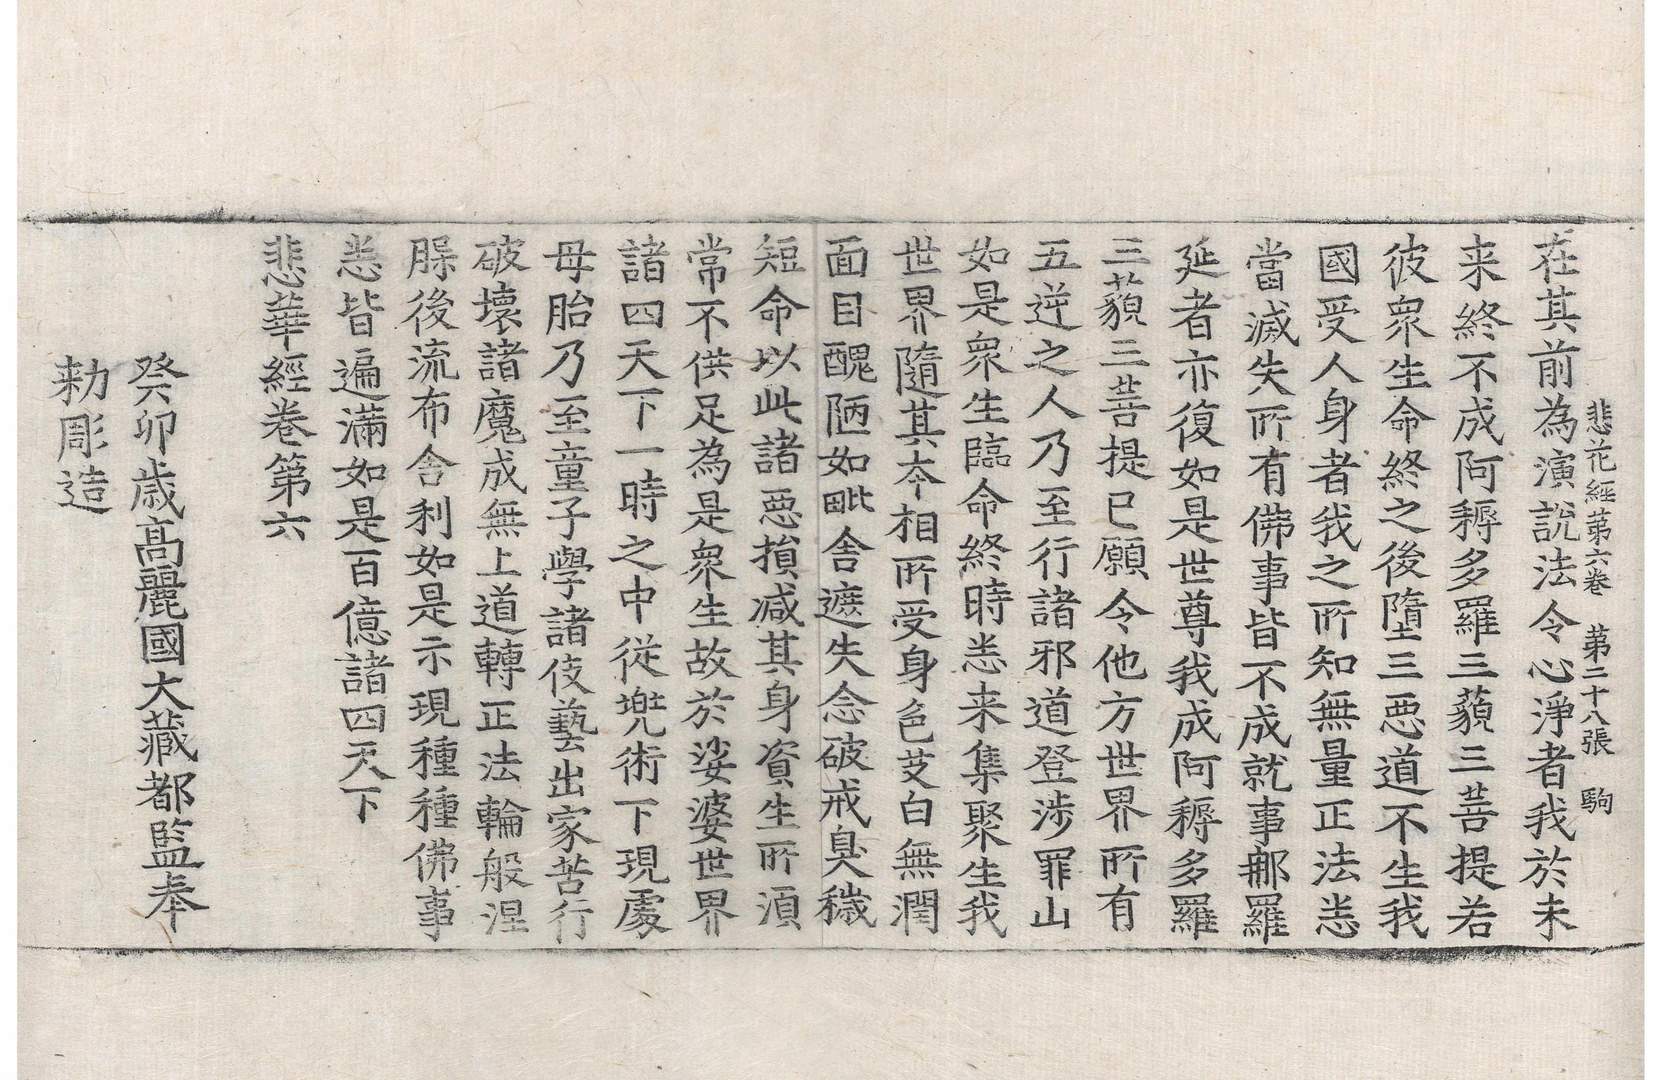 悲花經第六卷 第二十八張 駒
在其前為演說法令心淨者我於未
来終不成阿耨多羅三藐三菩提若
彼衆生命終之後墮三惡道不生我
國受人身者我之所知無量正法悉
當滅失所有佛事皆不成就事那羅
延者亦復如是世尊我成阿耨多羅
三藐三菩提已願令他方世界所有
五逆之人乃至行諸邪道登涉罪山
如是衆生臨命終時悉来集聚生我
世界隨其本相所受身色艾白無潤
面目醜陋如毗舍遮失念破戒臭穢
短命以此諸惡損減其身資生所須
常不供足為是衆生故於娑婆世界
諸四天下一時之中從兜術下現處
母胎乃至童子學諸伎藝出家苦行
破壞諸魔成無上道轉正法輪般涅
䐗後流布舍利如是示現種種佛事
悉皆遍滿如是百億諸四天下
悲華經卷第六
癸卯歲高麗國大藏都監奉
勅彫造